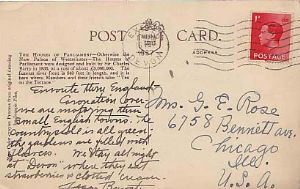 POST CARD.
THE HOUSES OF PARLIAMENT—Otherwise the
New Palace of Westminster—The Houses of
Parliament were designed and built by Sir Charles
Barry in 1852, at a cost of about £3,000,000. The
famous river front is 940 feet in length, and it is
here where Members and their friends take "Tea
on the Terrace"
ADDRESS
POSTAGE
Enroute thru England
Coronation Over
we are motoring thru
Small English towns. The
Countryside is all green
the gardens are filled with
flowers. We stay all night
"Devon" where they
strawberries & clotted cream
Mrs. G. E. Rose
6758 Bennett Ave.
Chicago
Ill.
U.S.A.